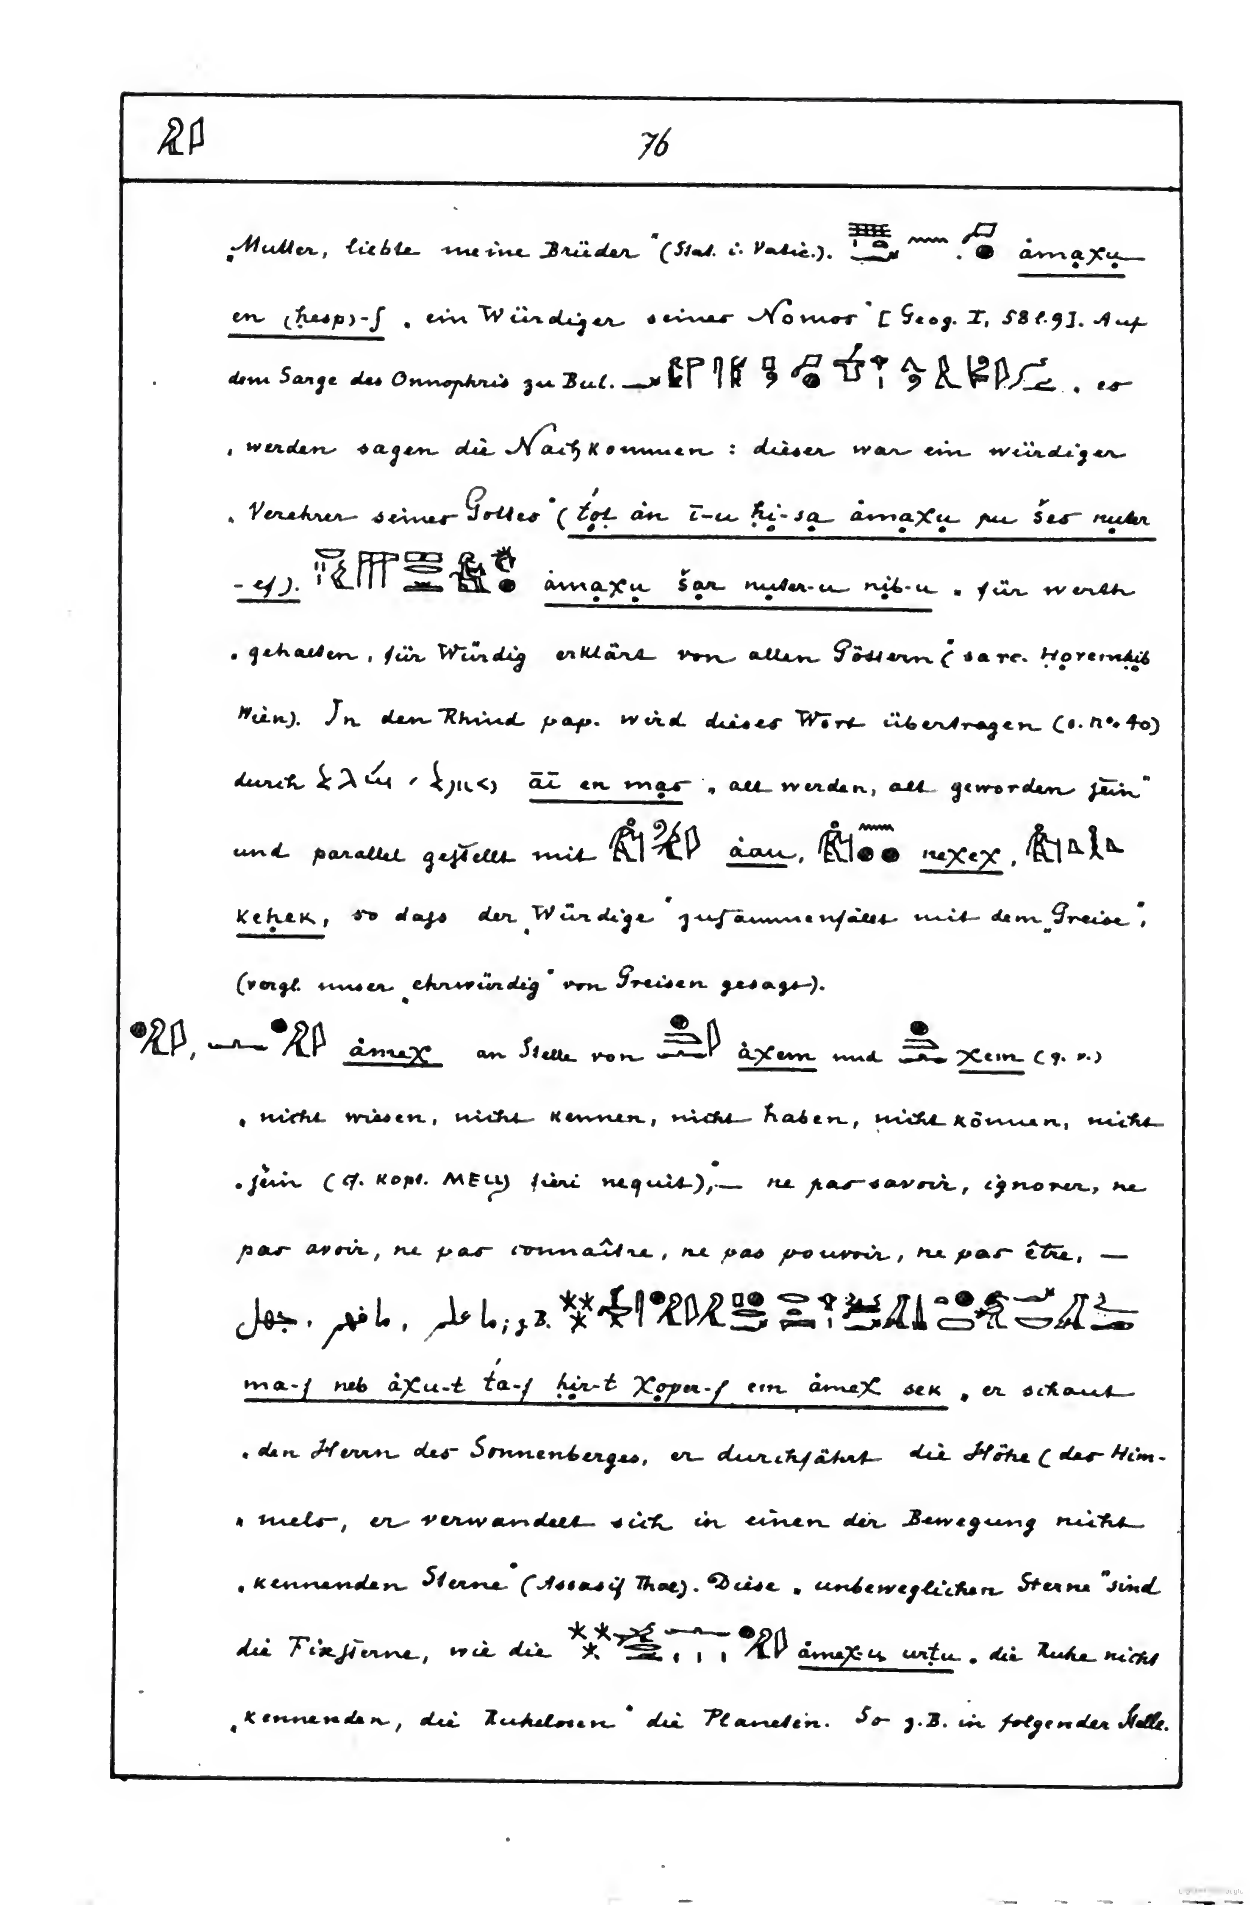 76
„Mutter, liebte meine Brüder“ (Stat. i. Vatic.). ȧmaχu
en (hesp)-f „ein Würdiger seines Nomos“ [Geog. I, 58 l. 9]. Auf
dem Sarge des Onnophris zu Bul. „es
„werden sagen die Nachkommen: dieser war ein würdiger
„Verehrer seines Gottes“ (t́ot ȧn ī-u ḥi-sa ȧmaχu pu šes nuter
-ef). ȧmaχu šar nuter-u nib-u „für werth
„gehalten, für Würdig erklärt von allen Göttern“ (sarc. Horemhib
Wien). In den Rhind pap. wird dieses Wort übertragen (s. no. 40)
durch āī en mas „alt werden, alt geworden sein“
und parallel gestellt mit ȧau, neχeχ,
keḥek, so dass der „Würdige“ zusammenfällt mit dem „Greise“,
(vergl. unser „ehrwürdig“ von Greisen gesagt).
, ȧmeχ an Stelle von ȧχem und χem (q. v.)
„nicht wissen, nicht kennen, nicht haben, nicht können, nicht
„sein (cf. kopt. ⲙⲉϣ fieri nequit),“ — ne pas savoir, ignorer, ne
pas avoir, ne pas connaître, ne pas pouvoir, ne pas être, —
جهل , ما فهم , ما علم; z.B.
ma-f neb ȧχu-t t́a-f ḥir-t χoper-f em ȧmeχ sek „er schaut
„den Herrn des Sonnenberges, er durchfährt die Höhe (des Him-
„mels, er verwandelt sich in einen der Bewegung nicht
„kennenden Sterne“ (Assasif Thal). Diese „unbeweglichen Sterne“ sind
die Fixsterne, wie die ȧmeχ-u urtu „die Ruhe nicht
„kennenden, die Ruhelosen“ die Planeten. So z.B. in folgender Stelle.